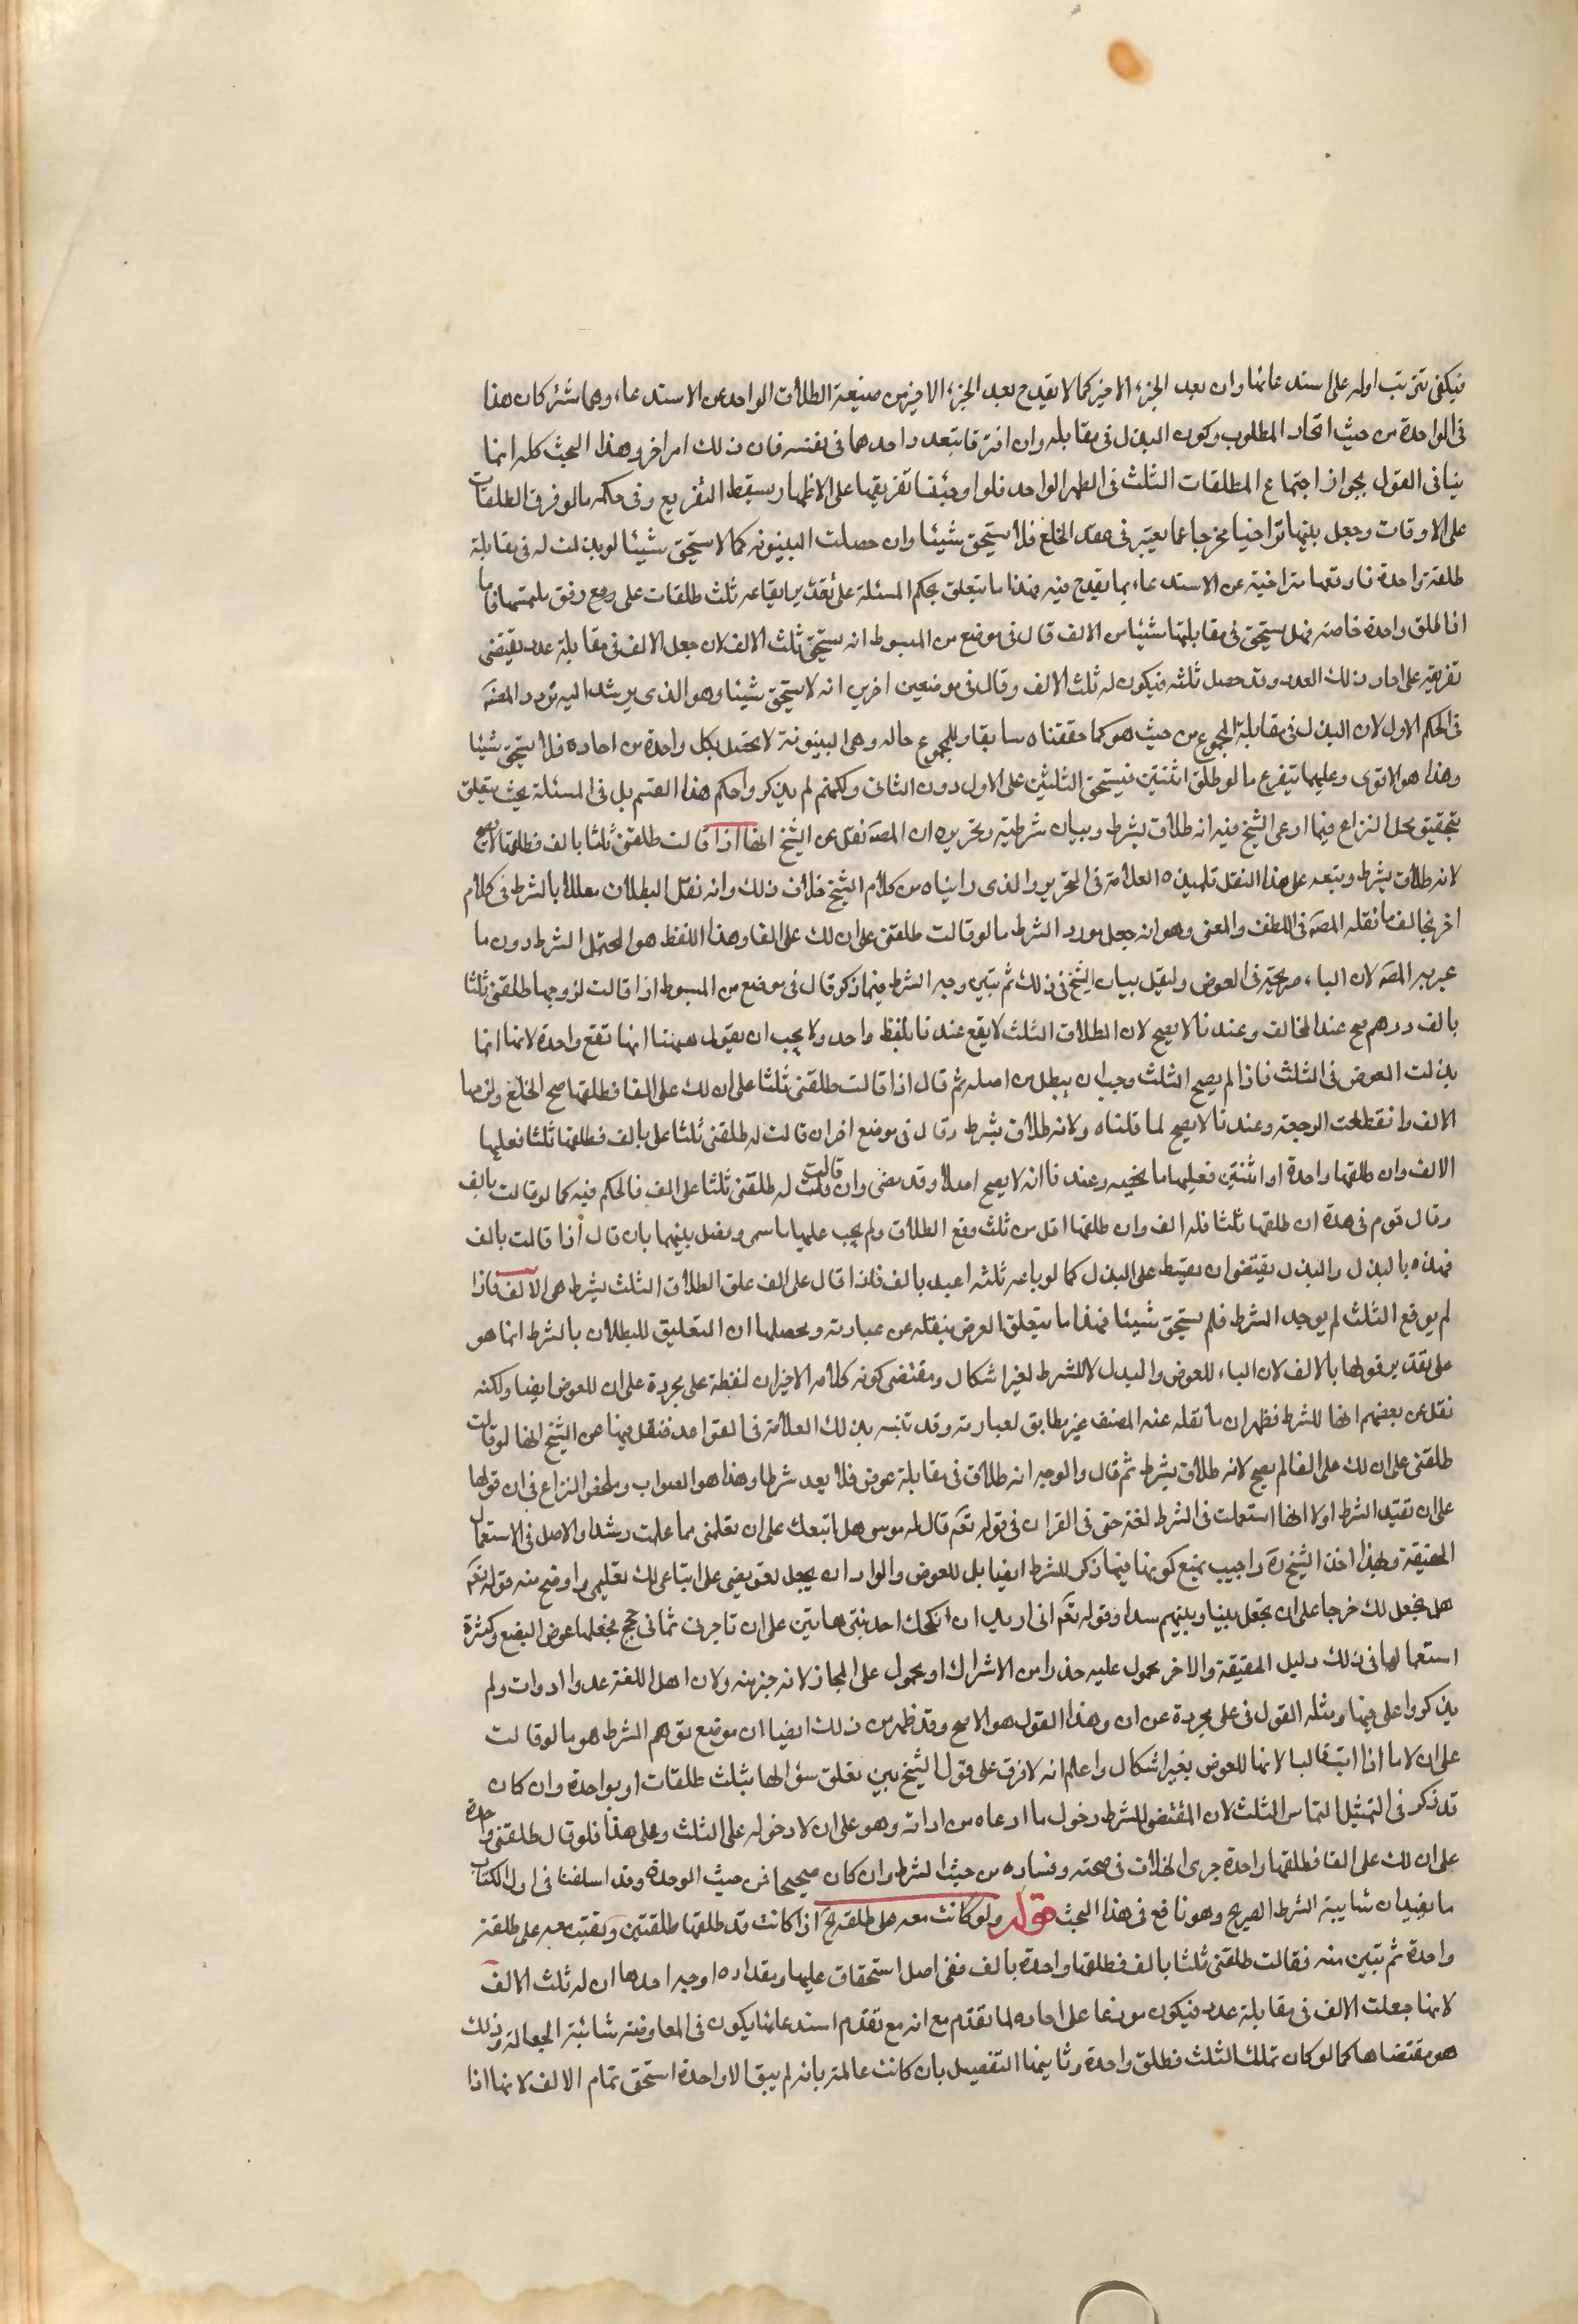 فيكفى ترتب اوله على استدعائها وان بعد الجزء الاخير كما لا يقدح بعد الجزء الاخير من صيغة الطلاق الواحد عن الاستدعاء وهما مشتركان هنا
فى الواحدة من حيث اتحاد المطلوب وكون البذل فى مقابله وان افترقا بتعدد احدهما فى نفسه فان ذلك امر اخر وهذا البحث كله انما
ينافى القول بجواز اجتماع المطلقات الثلث فى الطهر الواحد فلو اوجبنا تفريقها على الاطهار سقط التفريع وفى حكمه ما لو فرق الطلقات
على الاوقات وجعل بينها تراخيا مخرجا عما يعتبر فى عقد الخلع فلا يستحق شيئا وان حصلت البينونة كما لا يستحق شيئا لو بذلت له فى مقابلة
طلقة واحدة فاوقعها متراخية عن الاستدعاء بما يقدح فيه فهذا ما يتعلق بحكم المسئلة على تقدير ايقاعه ثلث طلقات على وفق ملتمسها فاما
اذا طلق واحدة خاصة فهل يستحق فى مقابلتها شيئا من الالف قال فى موضع من المبسوط انه يستحق ثلث الالف لان جعل الالف فى مقابلة عدد يقتضى
تفريقه على احاد ذلك العدد وقد حصل ثلثه فيكون له ثلث الالف وقال فى موضعين اخرين انه لا يستحق شيئا وهو الذى يرشد اليه تردد المصنف
فى الحكم الاول لان البذل فى مقابلة المجموع من حيث هو كما حققناه سابقا وللمجموع حاله وهى البينونة لا يحصل بكل واحدة من احاده فلا يستحق شيئا
وهذا هو الاقوى وعليهما يتفرع ما لو طلق اثنتين فيستحق الثلثين على الاول دون الثانى ولكنهم لم يذكروا حكم هذا القسم بل فى المسئلة بحيث يتعلق
بتحقيق محل النزاع فيما ادعى الشيخ فيه انه طلاق بشرط وبيان شرطيته وتحريره ان المصنف نقل عن الشيخ انها اذا قالت طلقنى ثلثا بالف فطلقها لا يصح
لانه طلاق بشرط وتبعه على هذا النقل تلميذه العلامة فى التحرير والذى رايناه من كلام الشيخ خلاف ذلك وانه نقل البطلان معللا بالشرط فى كلام
اخر يخالف ما نقله المصنف فى اللفظ والمعنى وهو انه جعل مورد الشرط ما لو قالت طلقنى على ان لك على الفا وهذا اللفظ هو المحتمل الشرط دون ما
عبر به المصنف لان الباء صريحة فى العوض ولنقل بيان الشيخ فى ذلك ثم نبين وجه الشرط فيما ذكر قال فى موضع من المبسوط اذا قالت لزوجها طلقنى ثلثا
بالف درهم صح عند المخالف وعندنا لا يصح لان الطلاق الثلث لا يقع عندنا بلفظ واحد ولا يجب ان يقول ههنا انها تقع واحدة لانها انما
بذلت العوض فى الثلث فاذا لم يصح الثلث وجب ان يبطل من اصله ثم قال اذا قالت طلقنى ثلثا على ان لك على الفا فطلقها صح الخلع ولزمها
الالف وانقطعت الرجعة وعندنا لا يصح لما قلناه ولانه طلاق بشرط وقال فى موضع اخر ان قالت له طلقنى ثلثا على بالف فطلقها ثلثا فعليها
الالف وان طلقها واحدة او اثنتين فعليها ما يخصه وعندنا انه لا يصح اصلا وقد مضى وان قالت له طلقنى ثلثا على الف فالحكم فيه كما لو قالت بالف
وقال قوم فى هذه ان طلقها ثلثا فله الف وان طلقها اقل من ثلث وقع الطلاق ولم يجب عليها ما سمى وفصل بينهما بان قال اذا قالت بالف
فهذه بالبذل والبذل يقتضى ان يقسط على البذل كما لو باعه ثلثة اعبد بالف فاذا قال على الف علق الطلاق الثلث بشرط هى الالف فاذا
لم يوقع الثلث لم يوجد الشرط فلم يستحق شيئا فهذا ما يتعلق الغرض بنقله عن عبارته ومحصلها ان التعليق للبطلان بالشرط انما هو
على تقدير قولها بالالف لان الباء للعوض والبدل لا للشرط لغير اشكال ومقتضى كونه كلامه الاخير ان لفظة على مجردة على ان للعوض ايضا ولكنه
نقل عن بعضهم انها للشرط فظهر ان ما نقله عنه المصنف غير مطابق لعبارته وقد تنبه بذلك العلامة فى القواعد فنقل فيها عن الشيخ انها لو قالت
طلقنى على ان لك على الفا لم يصح لانه طلاق بشرط ثم قال والوجه انه طلاق فى مقابلة عوض فلا يعد شرطا وهذا هو الصواب وملخص النزاع فى ان قولها
على ان تقيد الشرط اولا انها استعملت فى الشرط لغة حتى فى القران فى قوله تعم قال له موسى هل اتبعك على ان تعلمنى مما علمت رشدا والاصل فى الاستعمال
الحقيقة وبهذا اخذ الشيخ ره واجيب بمنع كونها فيما ذكر للشرط ايضا بل للعوض والمراد ان يجعل تعويضى على اتباعى لك تعليمى واوضح منه قوله تعم
هل نجعل لك خرجا على ان تجعل بيننا وبينهم سدا وقوله تعم انى اريد ان انكحك احدى ابنتى هاتين على ان تاجرنى ثمانى حجج فجعلها عوض البضع وكثرة
استعمالها فى ذلك دليل الحقيقة والاخر محمول عليه حذرا من الاشتراك او محمول على المجاز لانه خير منه ولان اهل اللغة عدوا ادوات ولم
يذكروا على فيها ومثله القول فى على مجردة عن ان وهذا القول هو الاصح وقد ظهر من ذلك ايضا ان موضع توهم الشرط هو ما لو قالت
على ان لا ما اذا اتت بالباء لانها للعوض بغير اشكال واعلم انه لا فرق على قول الشيخ بين تعلق سؤالها بثلث طلقات او بواحدة وان كان
قد ذكر فى التمثيل التماس الثلث لان المقتضى للشرط دخول ما ادعاه من اداته وهو على ان لا دخوله على الثلث وعلى هذا فلو قال طلقنى واحدة
على ان لك على الفا فطلقها واحدة جرى الخلاف فى صحته وفساده من حيث الشرط وان كان صحيحا من حيث الوحدة وقد اسلفنا فى اول الكتاب
ما يفيد ان شايبة الشرط الصريح وهو نافع فى هذا البحث قوله ولو كانت معه على طلقة الخ اذا كانت قد طلقها طلقتين وبقيت معه على طلقة
واحدة ثم تبين منه فقالت طلقنى ثلثا بالف فطلقها واحدة بالف ففى اصل استحقاق عليها ومقداره اوجه احدها ان له ثلث الالف
لانها جعلت الالف فى مقابلة عدد فيكون موزعا على احاده لما تقدم مع انه مع تقدم استدعائها يكون فى المعاوضة شائبة الجعالة وذلك
هو مقتضاها كما لو كان تملك الثلث فطلق واحدة وثانيها التفصيل بان كانت عالمة بانه لم يبق الا واحدة استحق تمام الالف لانها اذا